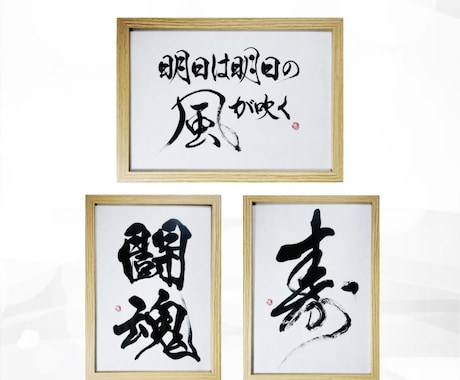 明日は明日の
風が吹く
闘
魂
寿